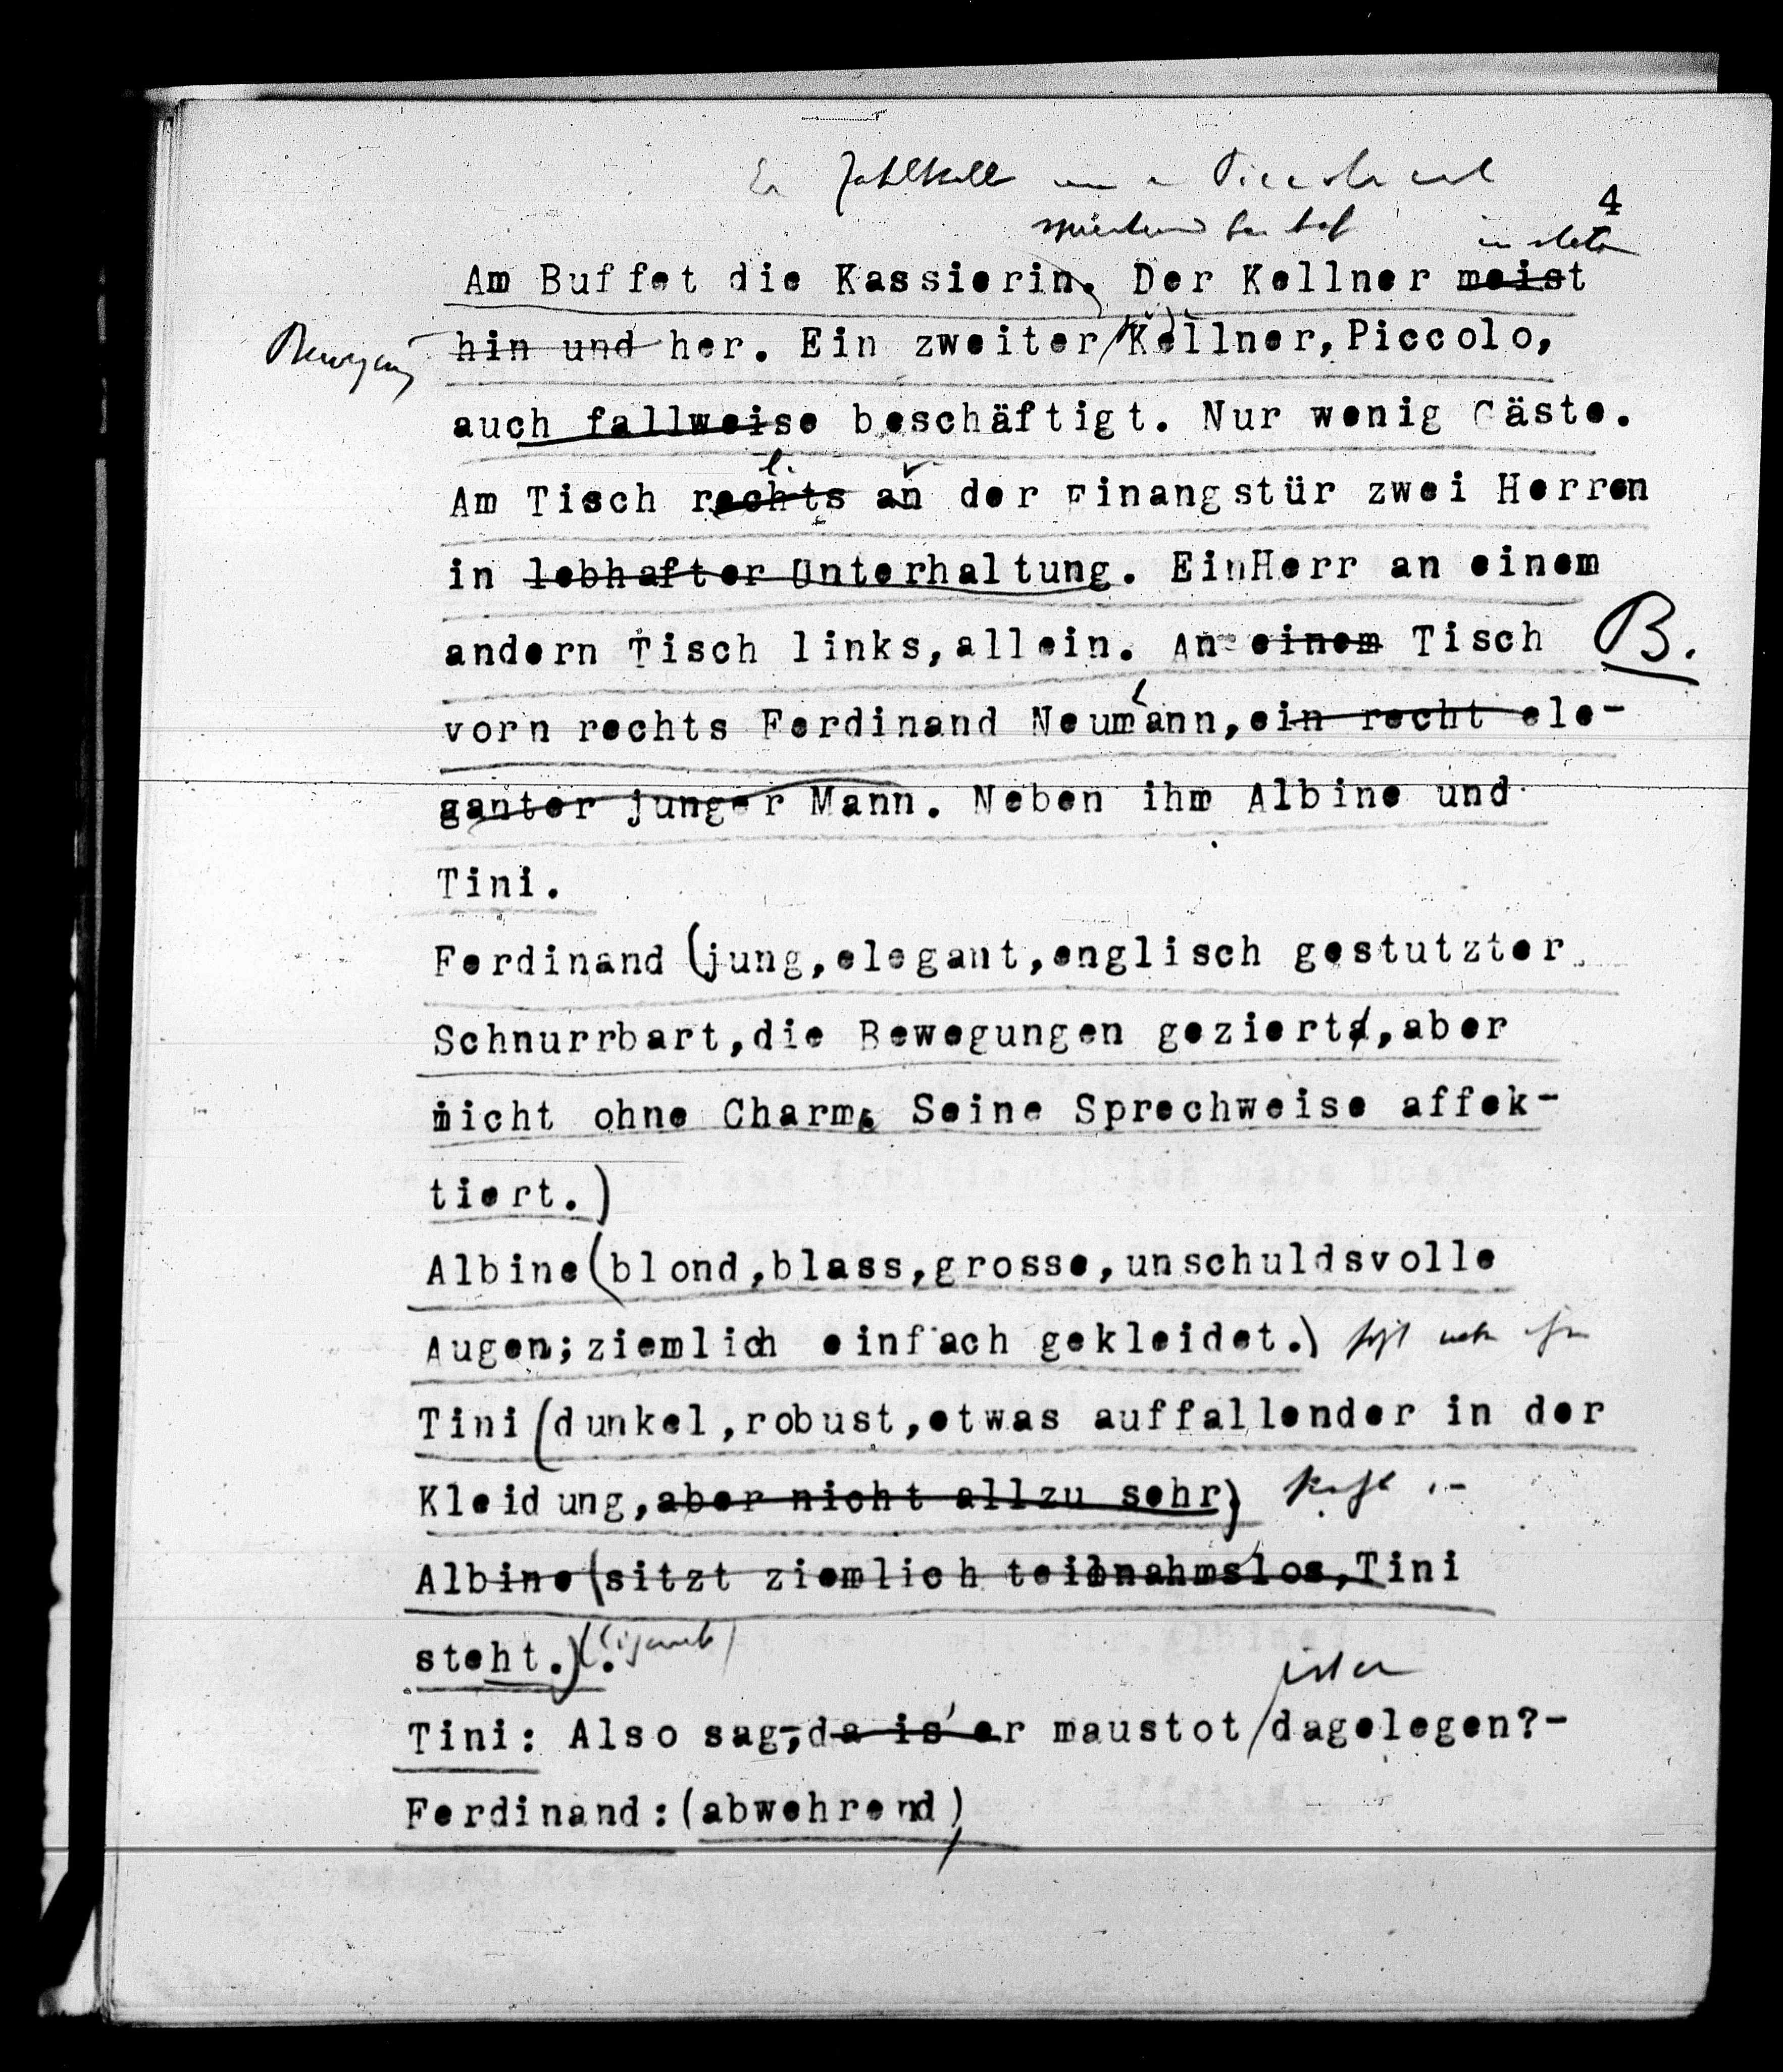 4
Am Buffet die Kassierin. Der Kellner meist
Bewegung hin und her. Ein zweiter Kellner, Piccolo,
auch fallweise beschäftigt. Nur wenig Gäste.
l.
Am Tisch rechts an der Einangstür zwei Herren
in lebhafter Unterhaltung. Ein Herr an einem
andern Tisch links, allein. An einem Tisch B.
vorn rechts Ferdinand Neumann, ein recht ele-
ganter junger Mann. Neben ihm Albine und
Tini.
Ferdinand (jung, elegant, englisch gestutzter
Schnurrbart, die Bewegungen geziert, aber
nicht ohne Charm. Seine Sprechweise affek-
tiert.)
Albine (blond, blass, grosse, unschuldsvolle
Augen; ziemlich einfach gekleidet.)
Tini (dunkel, robust, etwas auffallender in der
Kleidung, aber nicht allzu sehr)
Albine (sitzt ziemlich teilnahmslos, Tini
steht.).
is er
Tini: Also sag, da is' er maustot dagelegen?-
Ferdinand: (abwehrend)